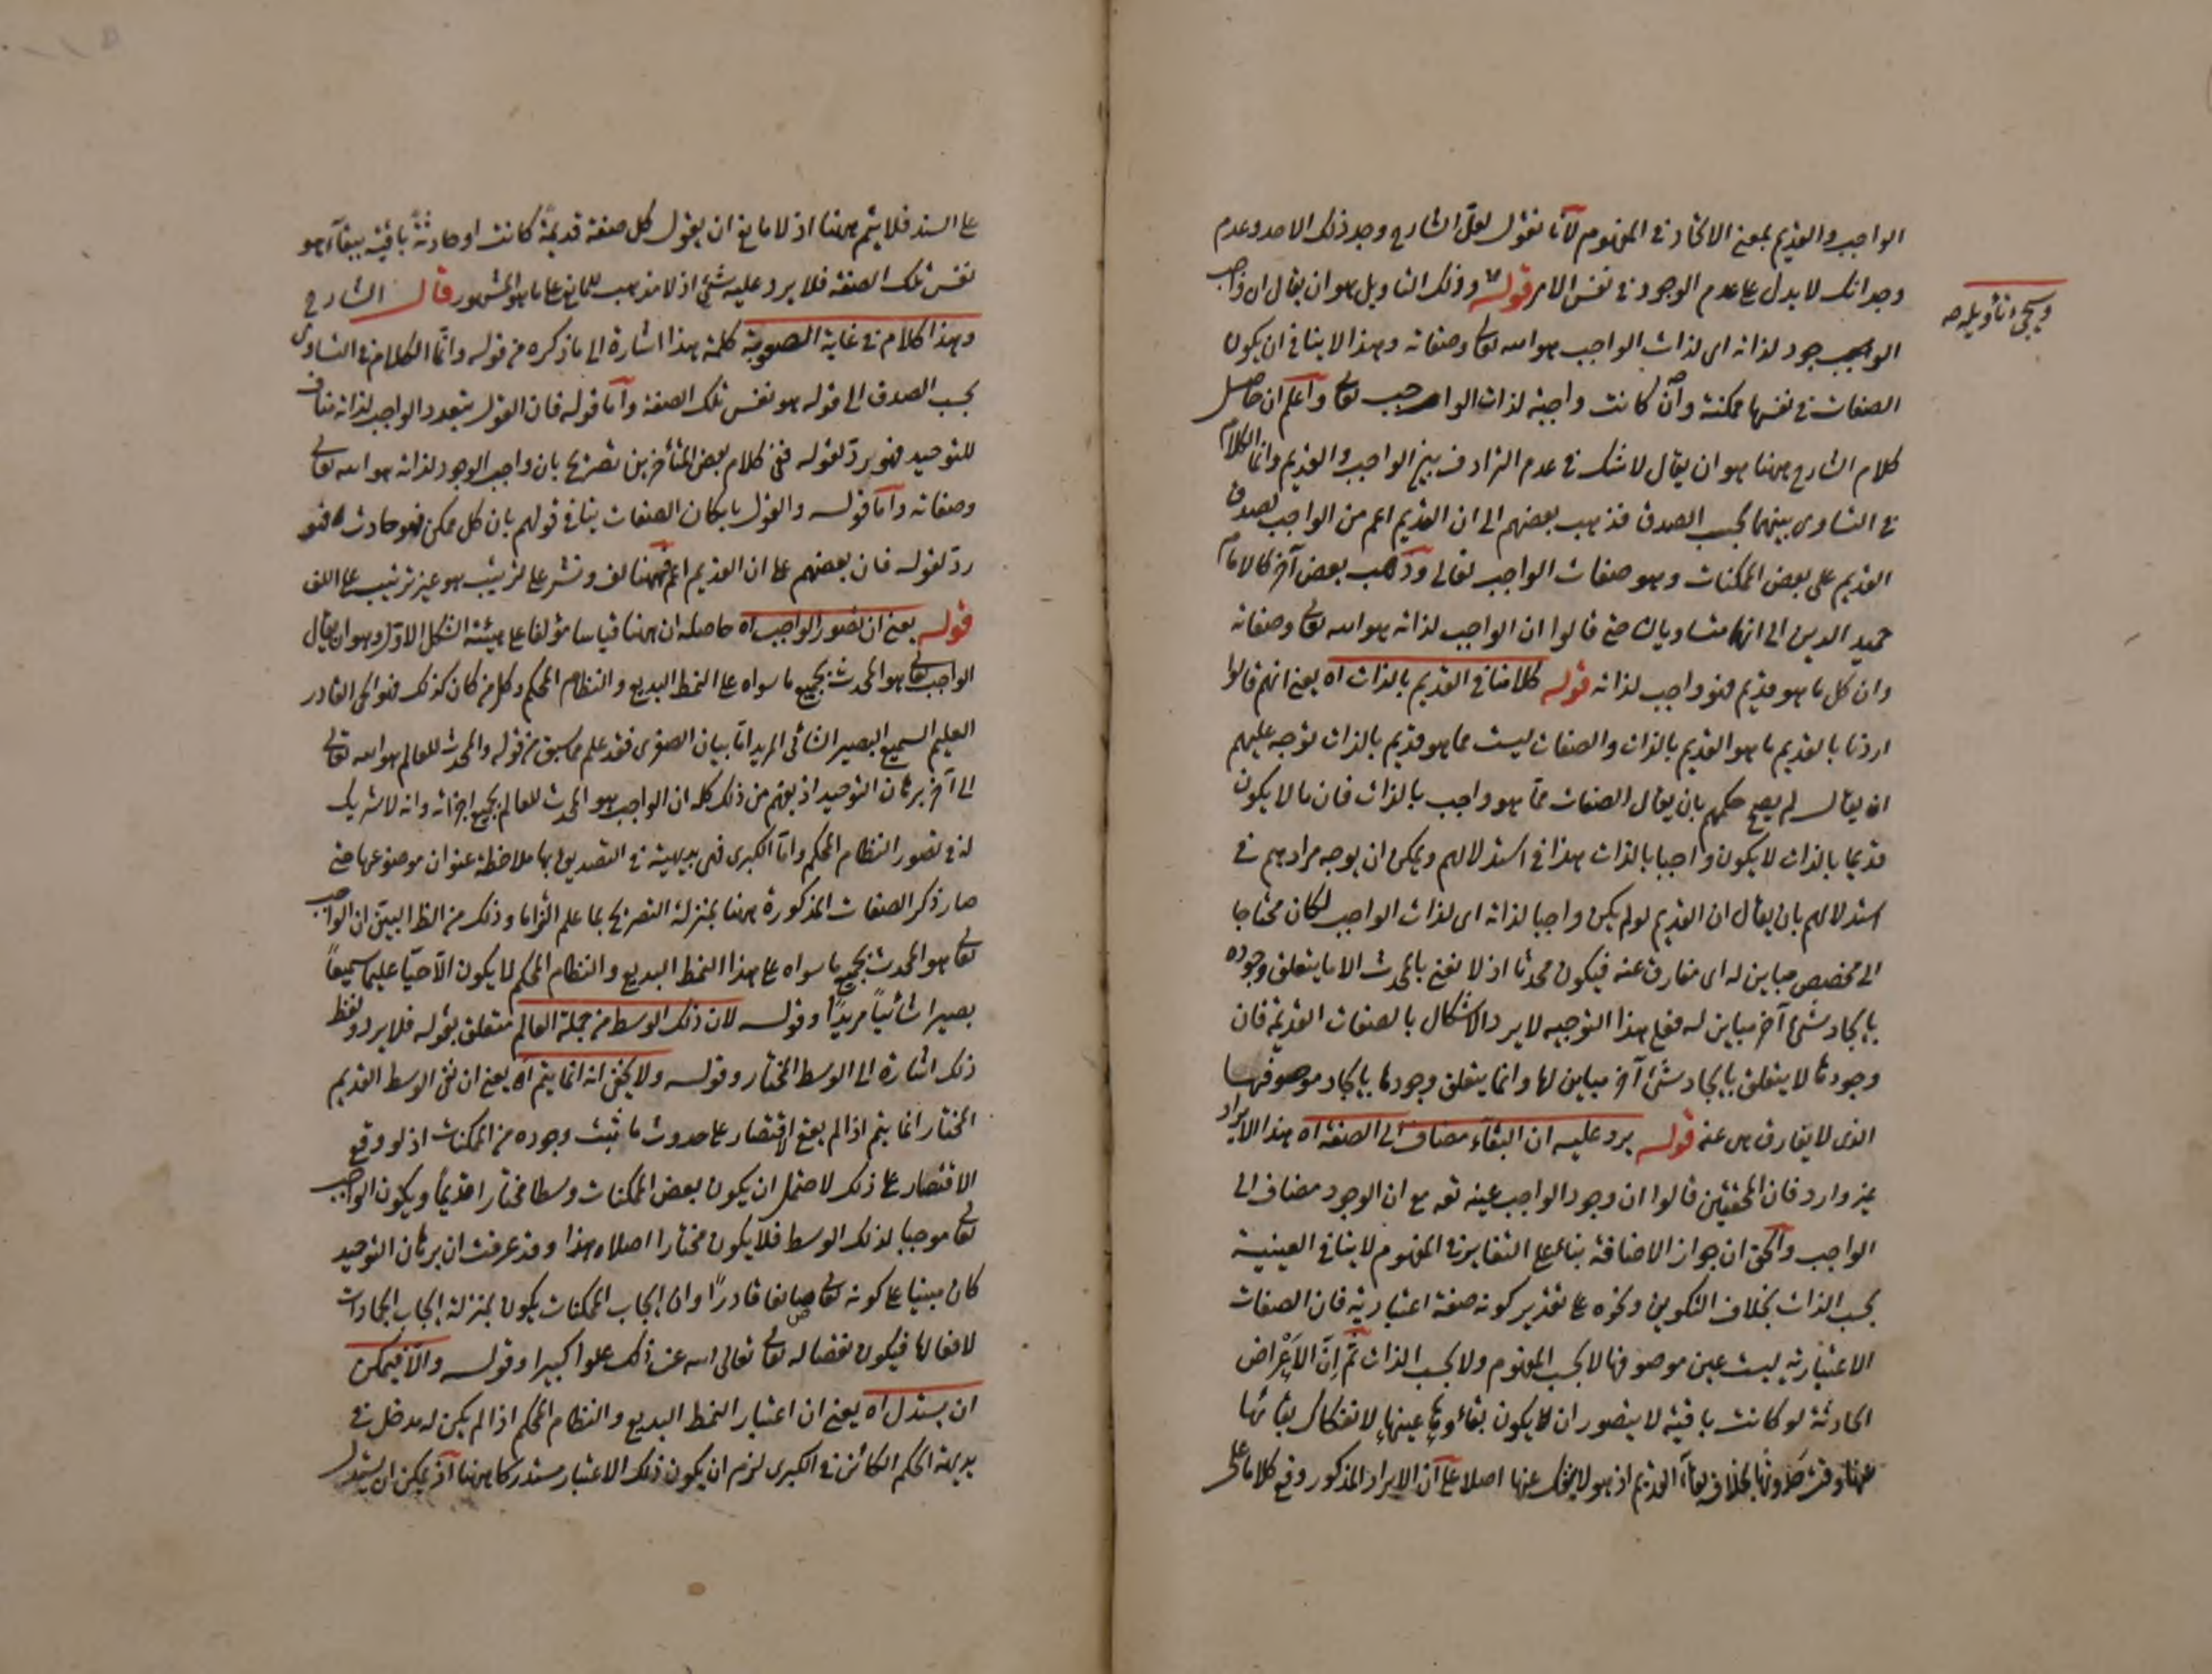 الواجب والقديم بمعنى الاتحاد في المفهوم لأنا نقول لعل الشارح وجد ذلك الاحد وعدم
وجدانك لا يدل على عدم الوجود في نفس الامر قوله وذلك التأويل هو ان يقال ان واجب
ويجئ تأويله صح
الوجود لذاته اى لذات الواجب هو الله تعالى وصفاته وهذا لا ينافى ان يكون
الصفات في نفسها ممكنة وان كانت واجبة لذات الواجب تعالى واعلم ان حاصل
كلام الشارح ههنا هو ان يقال لا شك في عدم الترادف بين الواجب والقديم وانما الكلام
في التساوى بينهما بحسب الصدق فذهب بعضهم الى ان القديم اعم من الواجب لصدق
القديم على بعض الممكنات وهو صفات الواجب تعالى وذهب بعض آخر كالامام
حميد الدين الى انهما متساويان حتى قالوا ان الواجب لذاته هو الله تعالى وصفاته
وان كل ما هو قديم فهو واجب لذاته قوله كلامنا في القديم بالذات اه يعنى انهم قالوا
اردنا بالقديم ما هو القديم بالذات والصفات ليست مما هو قديم بالذات توجه عليهم
ان يقال لم يصح حكمهم بان يقال الصفات مما هو واجب بالذات فان ما لا يكون
قديما بالذات لا يكون واجبا بالذات هذا في استدلالهم ويمكن ان يوجه مرادهم في
استدلالهم بان يقال ان القديم لو لم يكن واجبا لذاته اى لذات الواجب لكان محتاجا
الى مخصص مباين له اى مفارق عنه فيكون محدثا اذ لا نعنى بالمحدث الا ما يتعلق وجوده
بايجاد شئ آخر مباين له فعلى هذا التوجيه لا يرد الاشكال بالصفات القديمة فان
وجودها لا يتعلق بايجاد شئ آخر مباين لها وانما يتعلق وجودها بايجاد موصوفها
الذى لا يفارق هى عنه قوله يرد عليه ان البقاء مضاف الى الصفة اه هذا الايراد
غير وارد فان المحققين قالوا ان وجود الواجب عينه تع مع ان الوجود مضاف الى
الواجب والحق ان جواز الاضافة بناء على التغاير في المفهوم لا ينافى العينية
بحسب الذات بخلاف التكوين ونحوه على تقدير كونه صفة اعتبارية فان الصفات
الاعتبارية ليست عين موصوفها لا بحسب المفهوم ولا بحسب الذات ثم ان الاعراض
الحادثة لو كانت باقية لا يتصور ان يكون بقاؤها عينها لانفكاك بقائها
عنها وقت حدوثها بخلاف بقاء القديم اذ هو لا ينفك عنها اصلا على ان الايراد المذكور وقع كلاما على
على السند فلا يتم ههنا اذ لا مانع ان يقول كل صفة قديمة كانت او حادثة باقية ببقاء هو
نفس تلك الصفة فلا يرد عليه شئ اذ لا مذهب للمانع على ما هو المشهور قال الشارح
وهذا كلام في غاية الصعوبة كلمة هذا اشارة الى ما ذكره من قوله وانما الكلام في التساوى
بحسب الصدق الى قوله هو نفس تلك الصفة واما قوله فان القول بتعدد الواجب لذاته مناف
للتوحيد فهو رد لقوله ففى كلام بعض المتأخرين تصريح بان واجب الوجود لذاته هو الله تعالى
وصفاته واما قوله والقول بامكان الصفات ينافى قولهم بان كل ممكن فهو حادث فهو
رد لقوله فان بعضهم على ان القديم اعم فههنا لف ونشر على ترتيب هو غير ترتيب على اللف
قوله يعنى ان تصور الواجب اه حاصله ان ههنا قياسا مؤلفا على هيئة الشكل الاول وهو ان يقال
الواجب تعالى هو المحدث بجميع ما سواه على النمط البديع والنظام المحكم وكل من كان كذلك فهو الحى القادر
العليم السميع البصير الشائى المريد اما بيان الصغرى فقد علم مما سبق من قوله والمحدث للعالم هو الله تعالى
الى آخر برهان التوحيد اذ يفهم من ذلك كله ان الواجب هو المحدث للعالم بجميع اجزائه وانه لا شريك
له في تصور النظام المحكم واما الكبرى فهى بديهية في التصديق بها ملاحظة عنوان موضوعها حتى
صار ذكر الصفات المذكورة ههنا بمنزلة التصريح بما علم التزاما وذلك من الظ البين ان الواجب
تعالى هو المحدث بجميع ما سواه على هذا النمط البديع والنظام المحكم لما يكون الا حيا عليما سميعا
بصيرا شائيا مريدا وقوله لان ذلك الوسط من جملة العالم متعلق بقوله فلا يرد ولفظ
ذلك اشارة الى الوسط المختار وقوله ولا يخفى انه انما يتم اه يعنى ان نفى الوسط القديم
المختار انما يتم اذا لم يقع الاقتصار على حدوث ما ثبت وجوده من الممكنات اذ لو وقع
الاقتصار على ذلك لاحتمل ان يكون بعض الممكنات وسطا مختارا قديما ويكون الواجب
تعالى موجبا لذلك الوسط فلا يكون مختارا اصلا هذا وقد عرفت ان برهان التوحيد
كان مبنيا على كونه تعالى صانعا قادرا وان ايجاب الممكنات يكون بمنزلة ايجاب الجمادات
لافعالها فيكون نقصا له تعالى تعالى الله عن ذلك علوا كبيرا وقوله والا فيمكن
ان يستدل اه يعنى ان اعتبار النمط البديع والنظام المحكم اذا لم يكن له مدخل في
بديهة الحكم الكائن في الكبرى لزم ان يكون ذلك الاعتبار مستدركا ههنا اذ يمكن ان يستدل